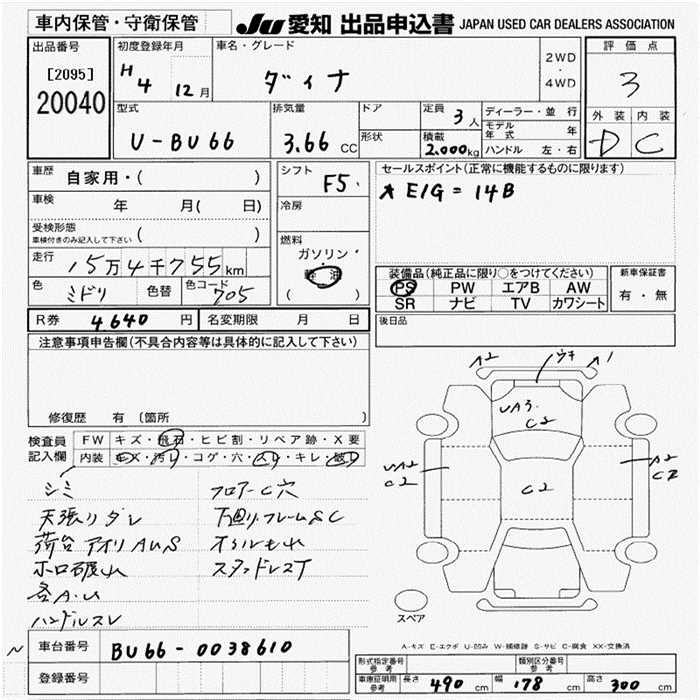 車内保管・守衛保管
JU 愛知 出品申込書 JAPAN USED CAR DEALERS ASSOCIATION
出品番号
[2095]
20040
初度登録年月
H 4 12月
車名・グレード
ダイナ
2WD
・
4WD
評価点
3
外装 内装
D C
型式
U-BU66
排気量
3.66 CC
ドア
形状
定員 3人
積載 2.000kg
ディーラー・並行
モデル年式 年
ハンドル 左・右
車歴 自家用・( )
車検 年 月( 日)
受検形態
車検付きのみ記入して下さい ( )
走行 15万4千755km
色 ミドリ 色替 色コード 705
シフト F5.
冷房
燃料
ガソリン・
軽油
( )
セールスポイント(正常に機能するものに限ります)
E/G = 14B
装備品(純正品に限り○をつけてください)
PS PW エアB AW
SR ナビ TV カワシート
新車保証書
有・無
R券 4.640 円 名変期限 月 日
後日品
注意事項申告欄(不具合内容等は具体的に記入して下さい)
修復歴 有 〔箇所 〕
検査員記入欄
FW キズ・飛石・ヒビ割・リペア跡・X要
内装 キズ・汚レ・コゲ・穴・スレ・キレ・破レ
シミ
天張リダレ
荷台アオリAUS
ホロ破山
各A.U
ハンドルスレ
フロアーC穴
下廻リ.フレームSC
オイルモレ
スタッドレスT
A2 ウキ A1
UA3.
C2
UA2
C2
C2
A2
C2
スペア
A-キズ E-エクボ U-凹み W-補修跡 S-サビ C-腐食 XX-交換済
車台番号 BU66-0038610
登録番号
形式指定番号 参考
類別区分番号 参考
車庫証明用 参考 長さ 490 cm 幅 178 cm 高さ 300 cm